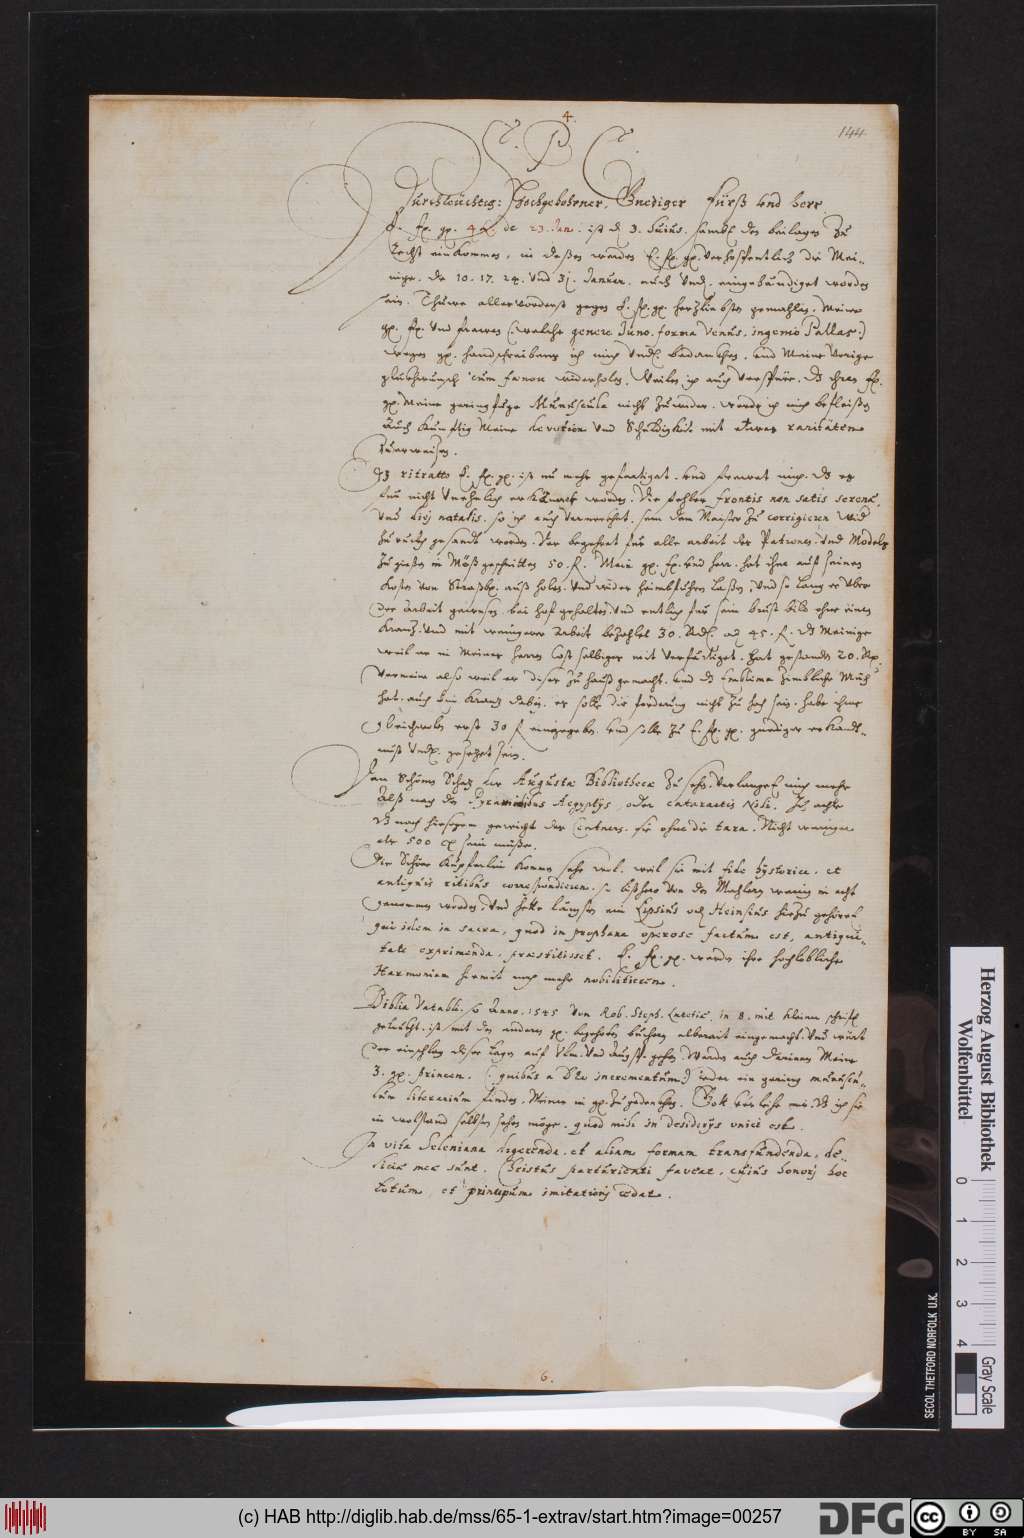 4.
144
Durchleuchtig: Hochgebohrner, Gnediger Fürst und herr.
E. fr. gn. 4 de 23. Jan. ist d 3. huius. sambt den beilagen zu
recht einkommen, in deßen werden E. fr. gn. verhoffentlich die Mei-
nige. de 10. 17. 24. und 31. Januar. auch eingehändiget worden
sein. Thuwe allervorderst gegen E. fr. gn. herzliebsten gemahlin, Meiner
gn. fr. und frawen (welche genere Juno, forma Venus, ingenio Pallas.)
wegen gn. handschreibens ich mich und. bedancken, und Meine vorige
glückwunsch cum fænore widerholen. Weilen ich auch verspüre, dz ihren fr.
gn. Meine geringfuge Munuscula nicht zuwider. werde ich mich befleißen
auch künfftig Meine devotion und Schuldigkeit mit etwas raritäten
zuerweisen.
Dz ritratto E. fr. gn. ist nu mehr gefertiget. und frewet mich. dz es
für nicht unehnlich erkannt worden. Die fehler frontis non satis serenæ,
und liej natalis. so ich auch vermerckhet. sein dem Maister zu corrigieren wid
zu ruckh gesandt worden. Der begehret für alle arbeit der Patronen und Modeln
zu gießen in Möß geschnitten 50. fl. Mein gn. fr. und herr. hat ihne auf seinen
Kosten von Straßbg. auß holen. und wider heimbführen laßen, und so lang er über
der arbeit gewesen. bei hof gehalten, und entlich für sein brust bild ohne einen
Kranz und mit weniger arbeit bezahlet 30. Rdl. od 45. fl. dz Meinige
weil er in Meines herren Cost selbiges mit verfertiget. hat gestanden 20. Rp.
Vermeine also weil er dises zu hauß gemacht. und dz Emblema zimbliche Müh
hat. auch kein Kranz dabey. es solte die forderung nicht zu hoch sein. habe ihme
gleichwolen erst 30 fl eingegeben. und solle zu E. fr. gn. gnediger erkandt-
nuß und. gesezet sein.
Den Schönen Schaz der Augustæ Bibliothecæ zu sehen. verlanget mich mehr
alß nach den Pyramidibus Aegyptijs, oder Cataractis Nili. Ich achte
dz nach hiesigem gewicht der Centner. sie ohne die tara. Nicht weniger
als 500 sein müße.
Die Schöne Kupferlin kommen sehr wol. weil sie mit fide hystorica. et
antiquis ritibus correspondieren. so bißhero von den Mahlern wenig in acht
genommen worden. und hette längsten ein Lipsius od Heinsius hiezu gehöret
qui idem in sacra, quod in prophana operose factum est, antiqui-
tate exprimenda, præstitisset. E. fr. gn. werden ihre hochlöbliche
Harmoniam hiemit noch mehr nobilitieren.
Biblia Vatabli, so Anno. 1545 von Rob. Steph. Lutetiæ. in 8. mit kleiner schrift
getruckht. ist mit den anderen gn. begehrten büchern alberait eingemacht. und wirt
der einschlag diser tagen auf Ulm und Augsp. gehen. Werden auch darinnen Meine
3. gn. princen. (quibus a Deo incrementum) ieder ein gering munuscu-
lum literarium finden, Meiner in gn. zugedencken. Gott verleihe mir. dz ich sie
in wolstand selbsten sehen möge. quod mihi in desiderijs unice est.
In vita Seleniana digerenda. et aliam formam transfundenda. de-
liciæ meæ sunt. Christus parturienti faveat, cujus honorj hoc
totum, et principum imitationj cedat.
6.
Herzog August Bibliothek
Wolfenbüttel
0 1 2 3 4
Gray Scale
SECOL THETFORD NORFOLK U.K.
(c) HAB http://diglib.hab.de/mss/65-1-extrav/start.htm?image=00257
DFG
cc
BY SA